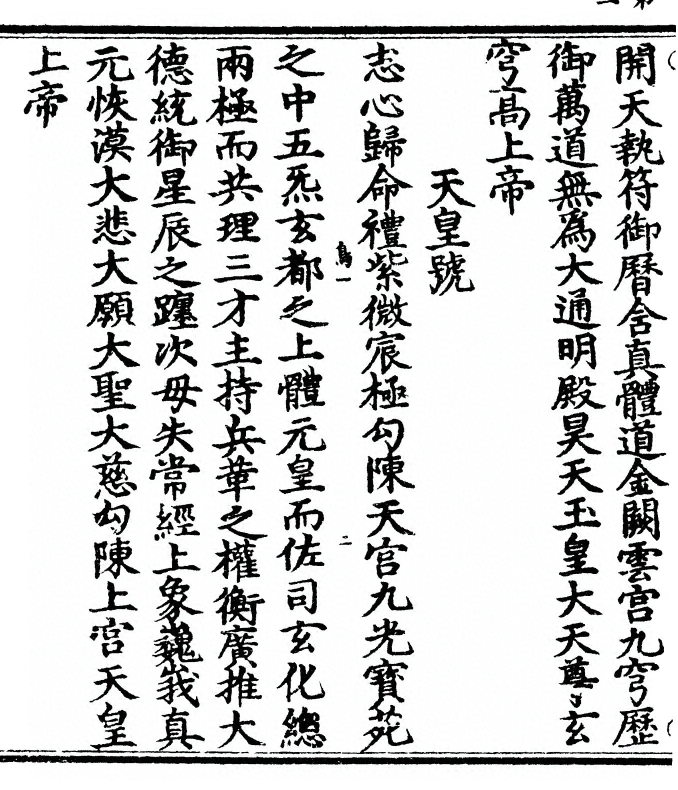 開天執符御曆含真體道金闕雲宮九穹歷
御萬道無為大通明殿昊天玉皇大天尊玄
穹高上帝
天皇號
志心歸命禮紫微宸極勾陳天宮九光寶苑
之中五炁玄都之上體元皇而佐司玄化總
兩極而共理三才主持兵革之權衡廣推大
德統御星辰之躔次毋失常經上象巍峩真
元恢漠大悲大願大聖大慈勾陳上宮天皇
上帝